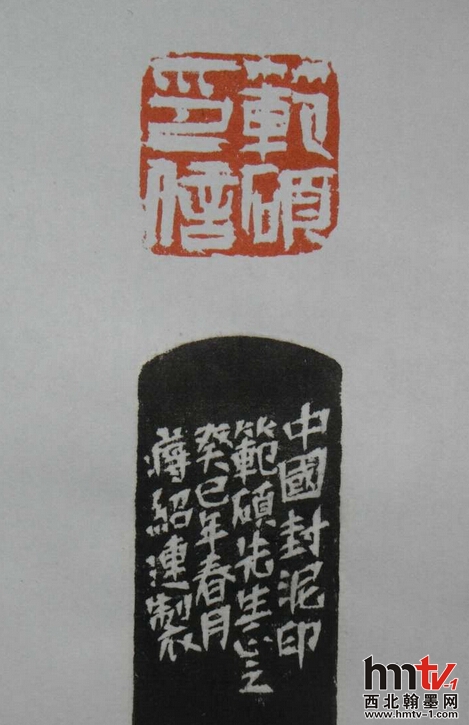 範碩
印信
中國封泥印
範碩先生正之
癸巳年春月
蔣紹連製
hmtv-1
西北翰墨网
www.hmtv-1.com